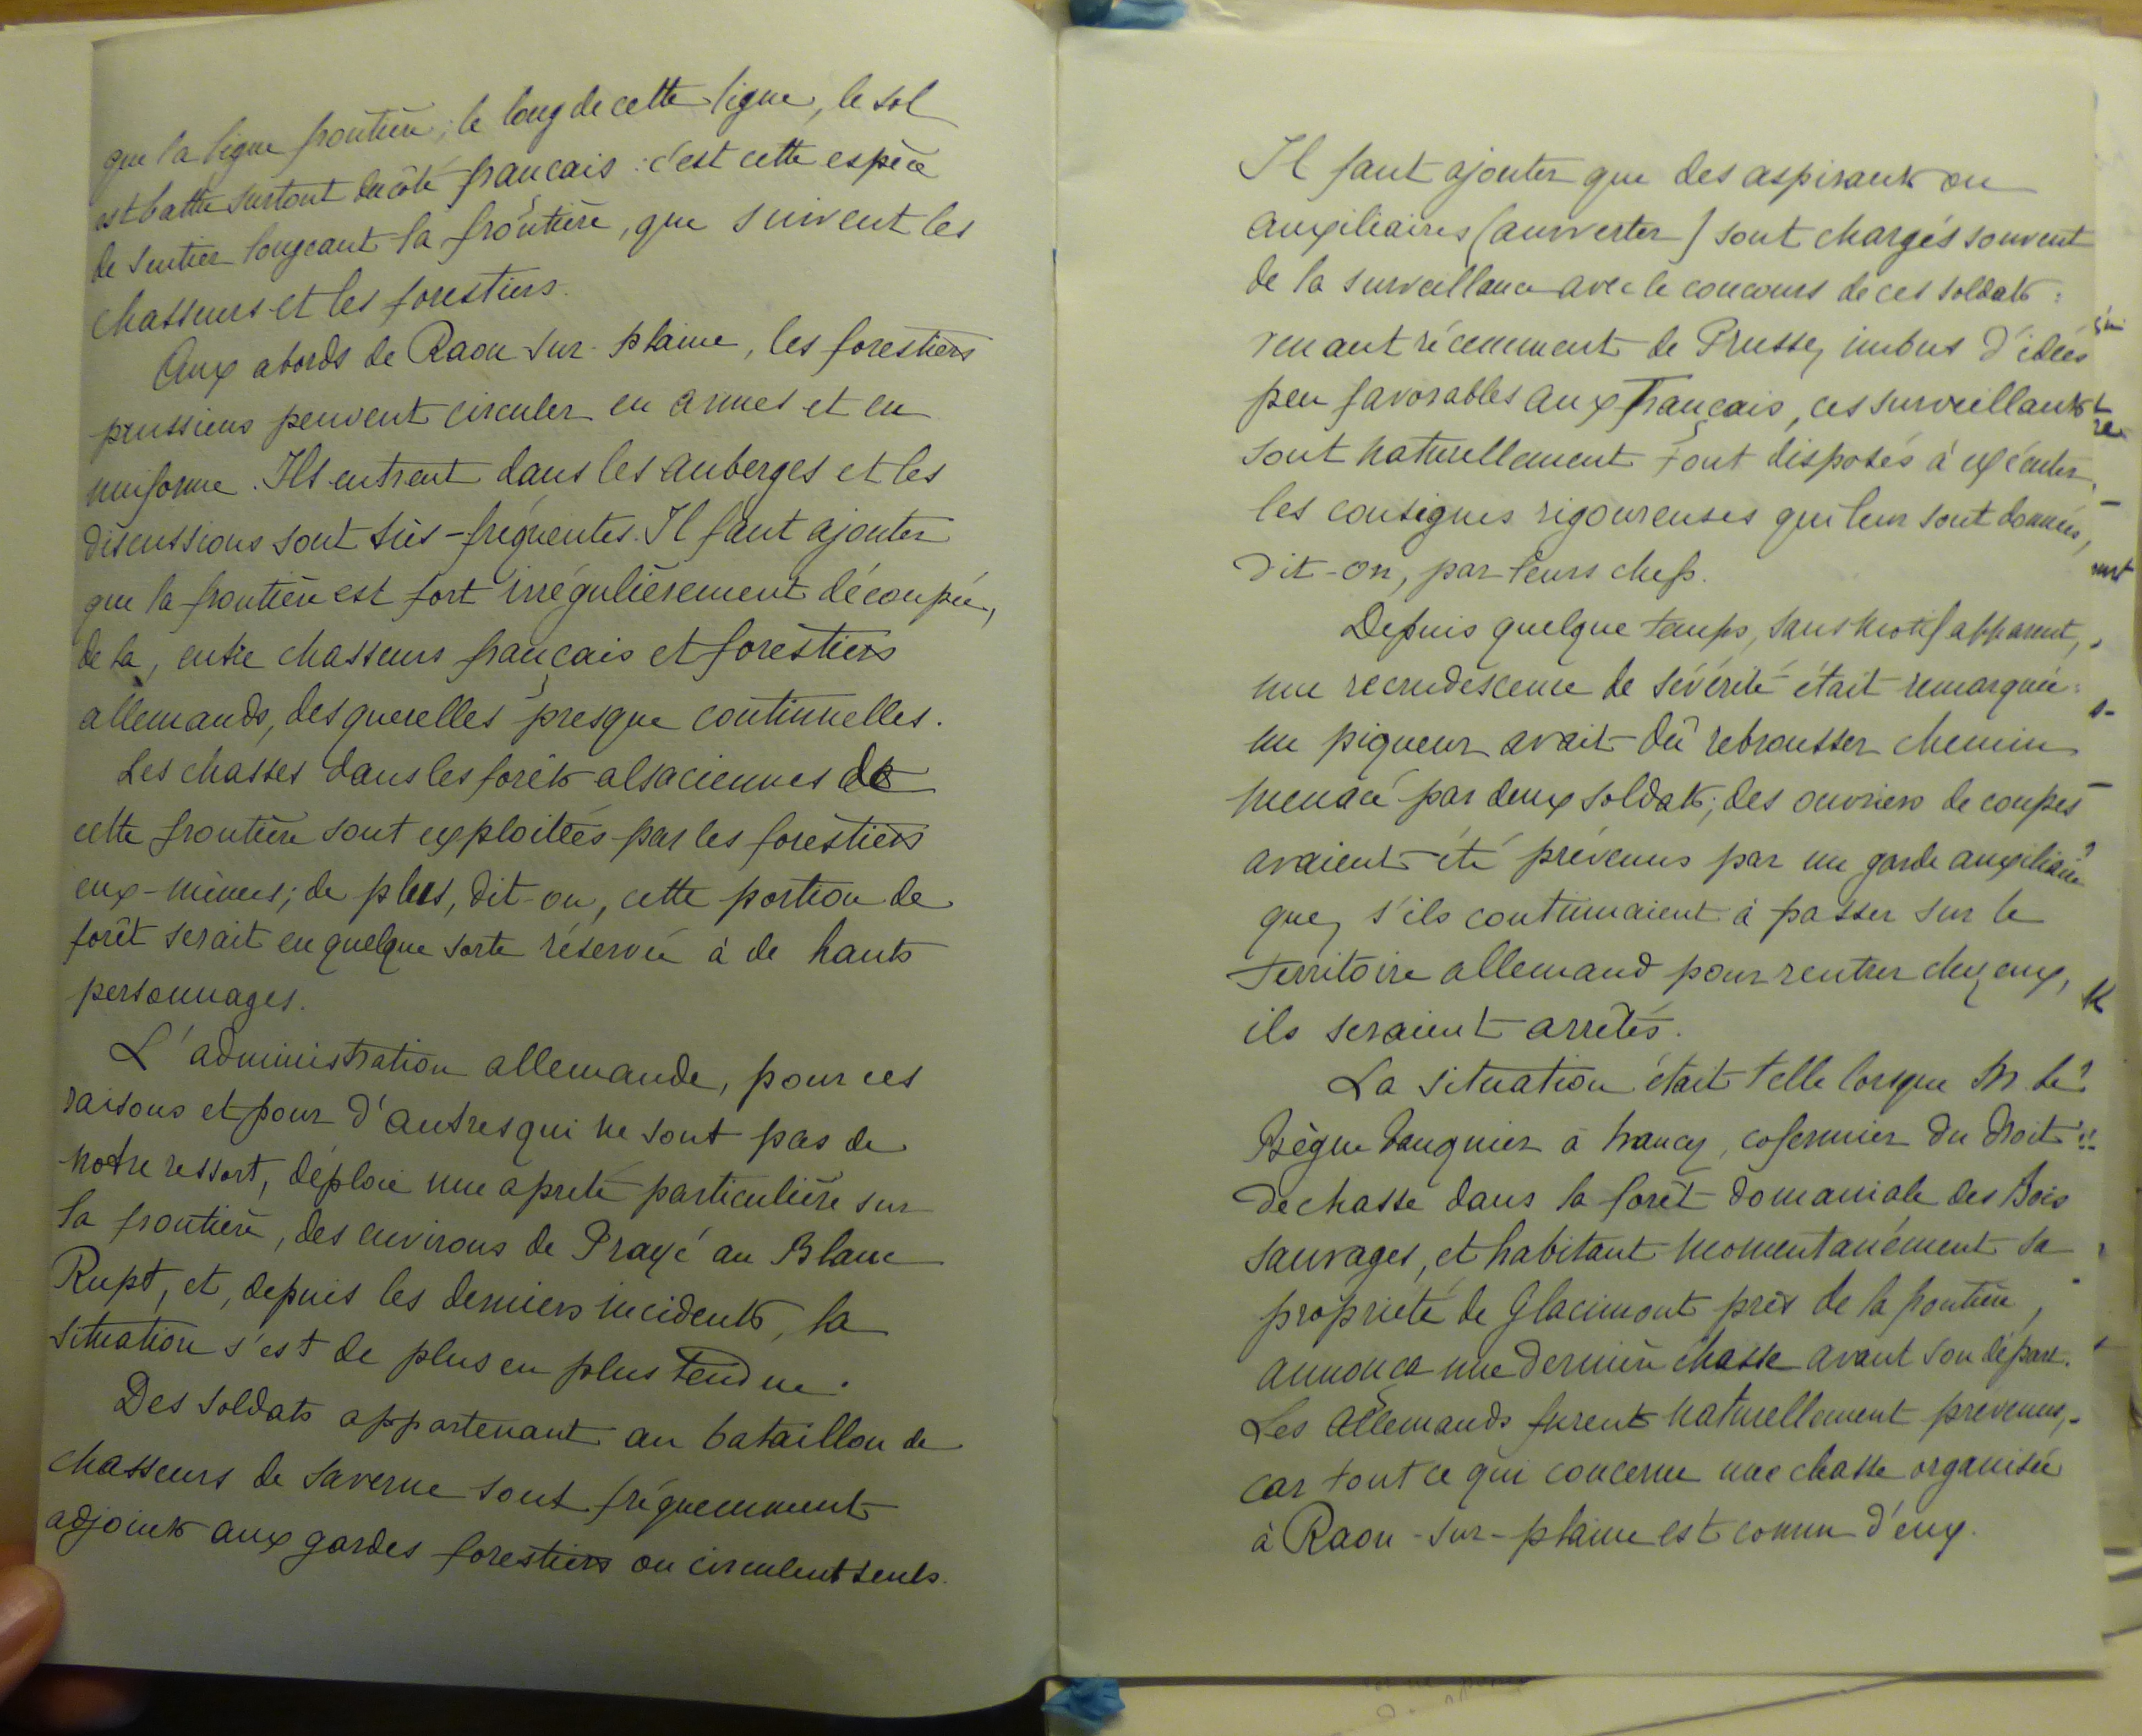 que la ligne frontière; le long de cette ligne, le sol
est battu surtout du côté français : c'est cette espèce
de sentier longeant la frontière, que suivent les
chasseurs et les forestiers.
Aux abords de Raon-sur-plaine, les forestiers
prussiens peuvent circuler en armes et en
uniforme. Ils entrent dans les auberges et les
discussions sont très-fréquentes. Il faut ajouter
que la frontière est fort irrégulièrement découpée,
de là, entre chasseurs français et forestiers
allemands, des querelles presque continuelles.
Les chasses dans les forêts alsaciennes de
cette frontière sont exploitées par les forestiers
eux-mêmes; de plus, dit-on, cette portion de
forêt serait en quelque sorte réservée à de hauts
personnages.
L'administration allemande, pour ces
raisons et pour d'autres qui ne sont pas de
notre ressort, déploie une âpreté particulière sur
la frontière, des environs de Prayé au Blanc
Rupt, et, depuis les derniers incidents, la
situation s'est de plus en plus tendue.
Des soldats appartenant au bataillon de
chasseurs de Saverne sont fréquemment
adjoints aux gardes forestiers ou circulent seuls.
Il faut ajouter que des aspirants ou
auxiliaires (anwerter) sont chargés souvent
de la surveillance avec le concours de ces soldats :
venant récemment de Prusse, imbus d'idées
peu favorables aux Français, ces surveillants
sont naturellement tout disposés à exécuter
les consignes rigoureuses qui leur sont données,
dit-on, par leurs chefs.
Depuis quelque temps, sans motif apparent,
une recrudescence de sévérité était remarquée :
un piqueur avait dû rebrousser chemin
menacé par deux soldats; des ouvriers de coupes
avaient été prévenus par un garde auxiliaire
que, s'ils continuaient à passer sur le
territoire allemand pour rentrer chez eux,
ils seraient arrêtés.
La situation était telle lorsque M. le
Bègue à Nancy, cofermier du droit
de chasse dans la forêt domaniale des Bois
sauvages, et habitant momentanément sa
propriété de Glacimont près de la frontière,
annonça une dernière chasse avant son départ.
Les Allemands furent naturellement prévenus,
car tout ce qui concerne une chasse organisée
à Raon-sur-plaine est connu d'eux.